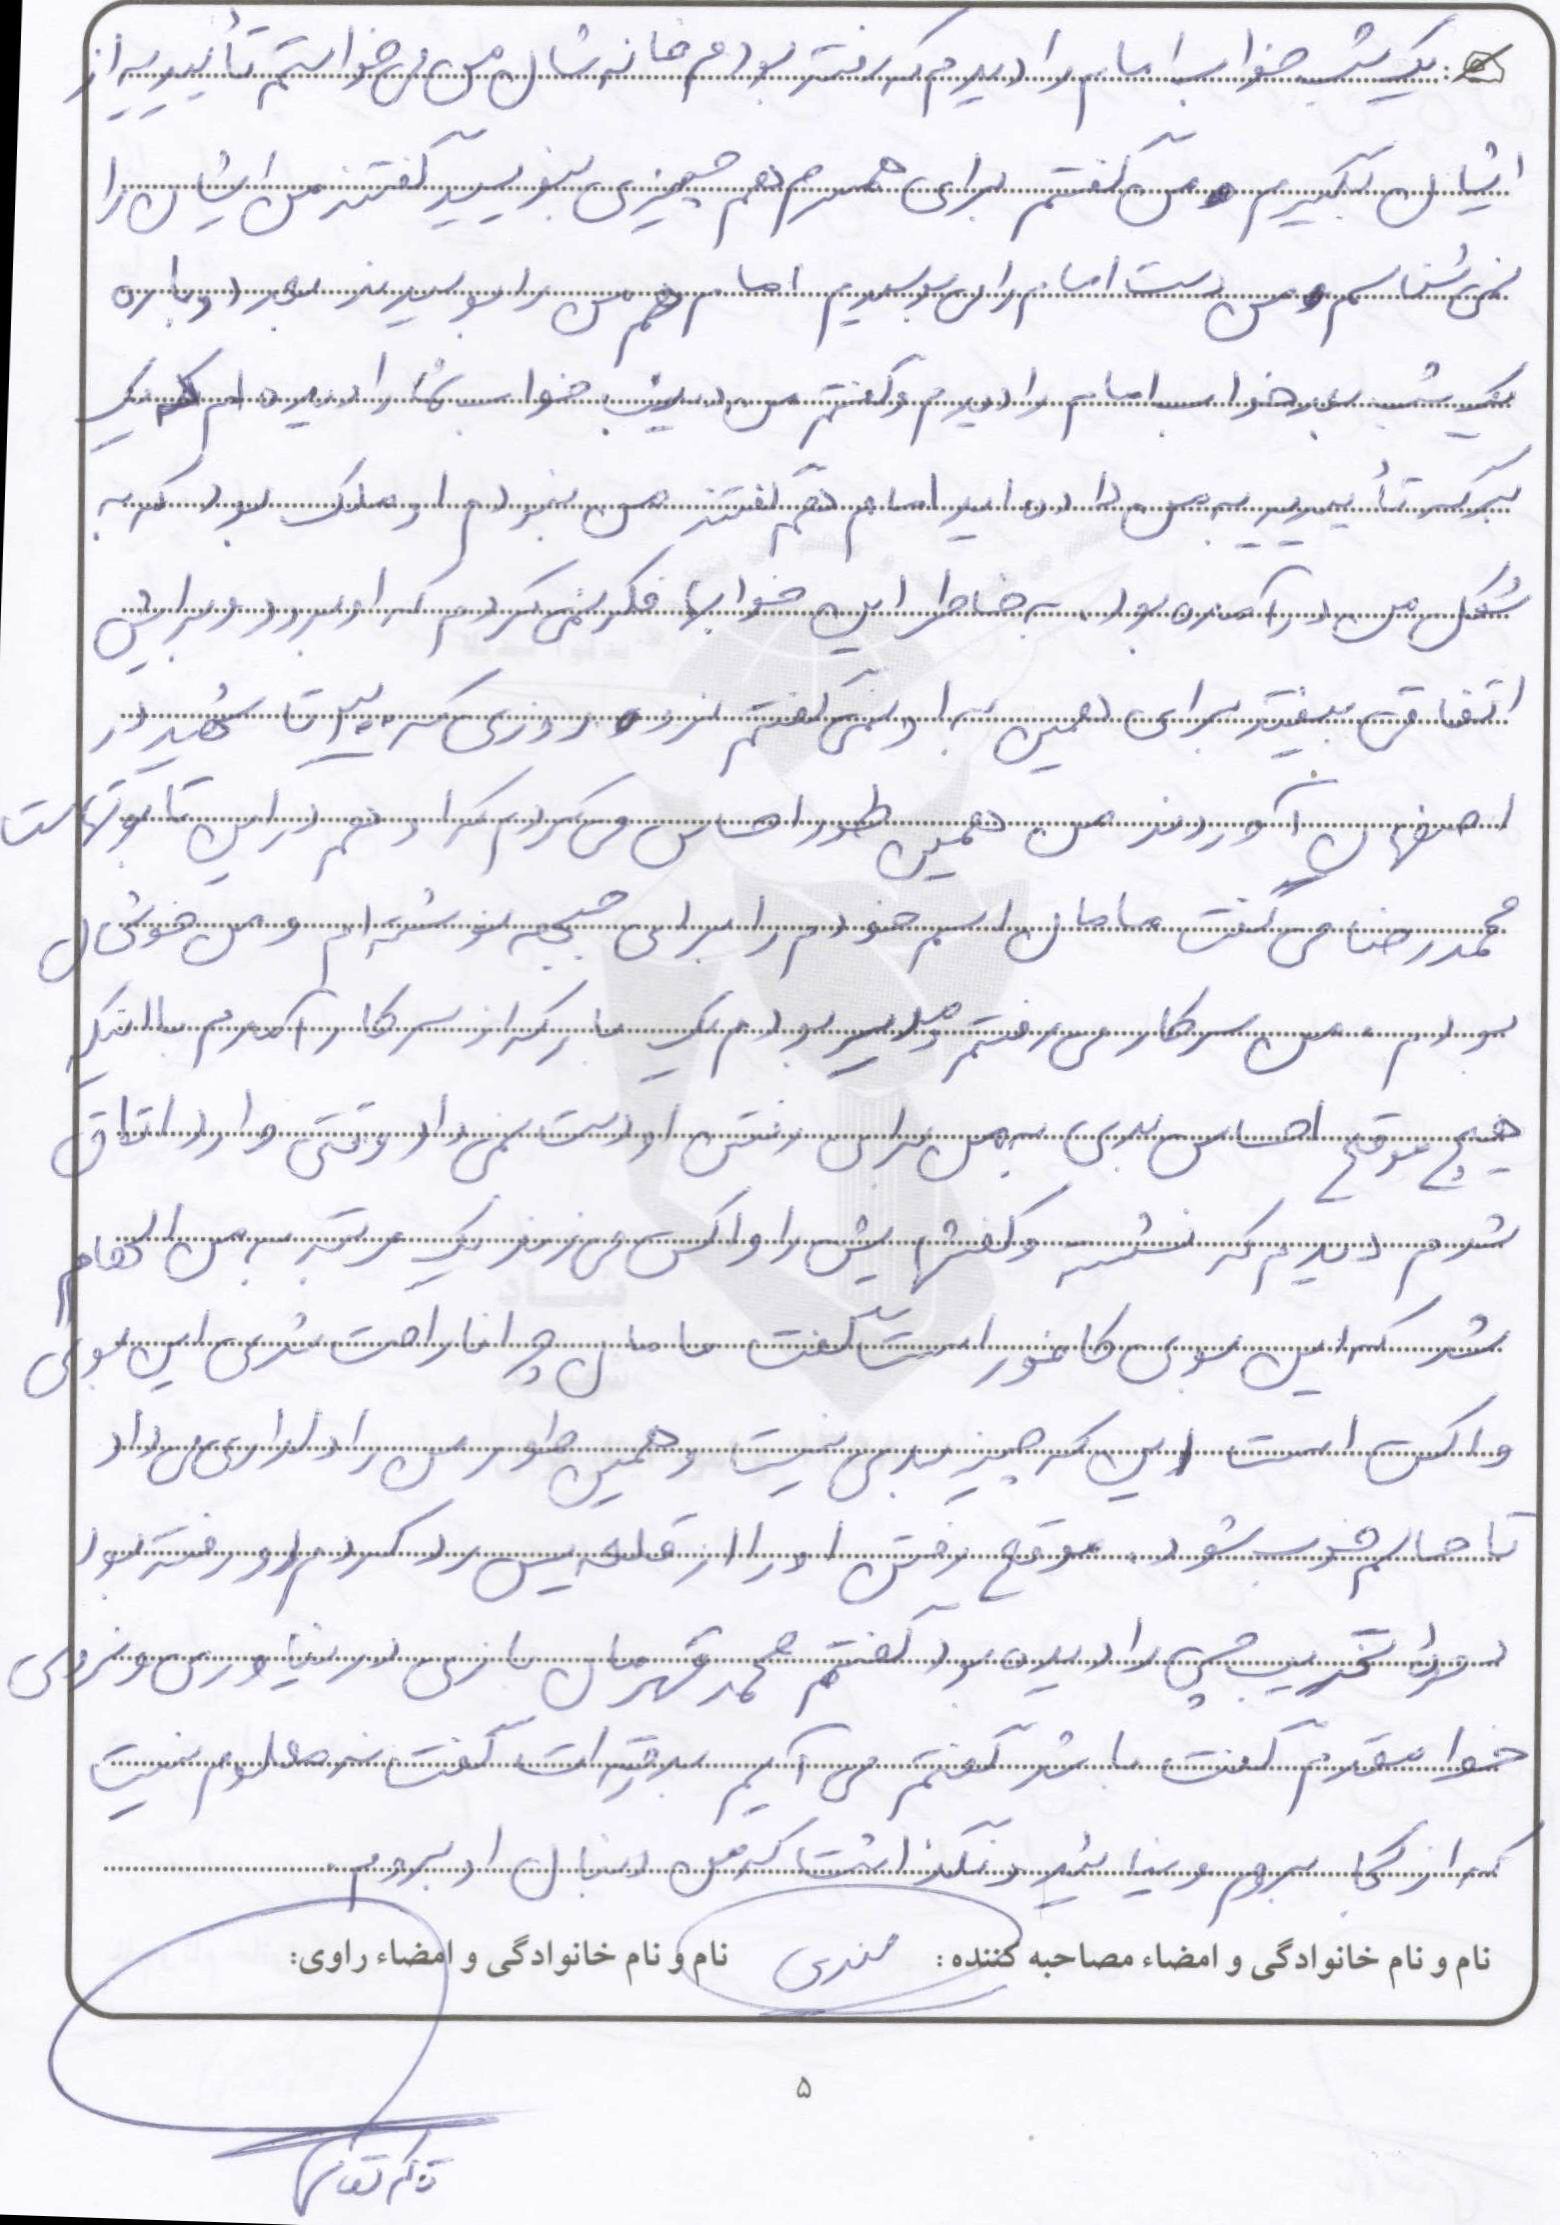 یک شب خواب امام را دیدم که رفته بودم خانه شان من می خواستم تأییدیه از
ایشان بگیرم و من گفتم برای همسرم هم چیزی بنویسید گفتند من ایشان را
نمی شناسم و من دست امام را می بوسیدم امام هم من را بوسیدند بعد دوباره
یک شب بعد خواب امام را دیدم و گفتم من دیشب خواب شما را دیده ام که یک
برگه تأییدیه به من داده اید امام هم گفتند من نبودم او ملک بود که به
شکل من در آمده بود. به خاطر این خوابها فکر نمی کردم که او برود و برایش
اتفاقی بیفتد برای همین به او نمی گفتم نرو. روزی که تا شهید در
اصفهان آوردند من همین طور احساس می کردم که او هم در این تابوتهاست
محمدرضا می گفت مامان اسم خودم را برای جبهه نوشته ام و من خوشحال
بودم. من سرکار می رفتم و مدیر بودم یک بار که از سرکار آمدم با اینکه
هیچ موقع احساس بدی به من برای رفتن او دست نمی داد وقتی وارد اتاق
شدم دیدم که نشسته و کفشهایش را واکس می زند یک مرتبه به من الهام
شد که این بوی کافور است گفت مامان چرا ناراحت شدی این بوی
واکس است این که چیز بدی نیست و همین طور من را دلداری می داد
تا حالم خوب شود. موقع رفتن او را از قلعه یس رد کردم او رفته بود
دوره تخریب چی را دیده بود گفتم محمد قهرمان بازی در نیاوری و نروی
خط مقدم گفت باشد گفتم می آیم بدرقه ات گفت نه معلوم نیست
که از کجا بروم و نیایید و نگذاشت که من دنبال او بروم.
نام و نام خانوادگی و امضاء مصاحبه کننده : نام و نام خانوادگی و امضاء راوی:
۵